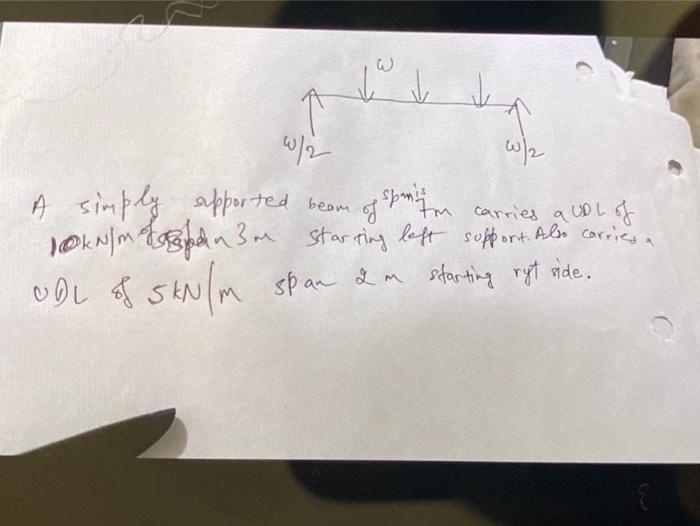 ω
ω/2 ω/2
A simply supported beam of span is 7m carries a UDL of
10kN/m of span 3m starting left support. Also carries a
UDL of 5kN/m span 2m starting ryt side.